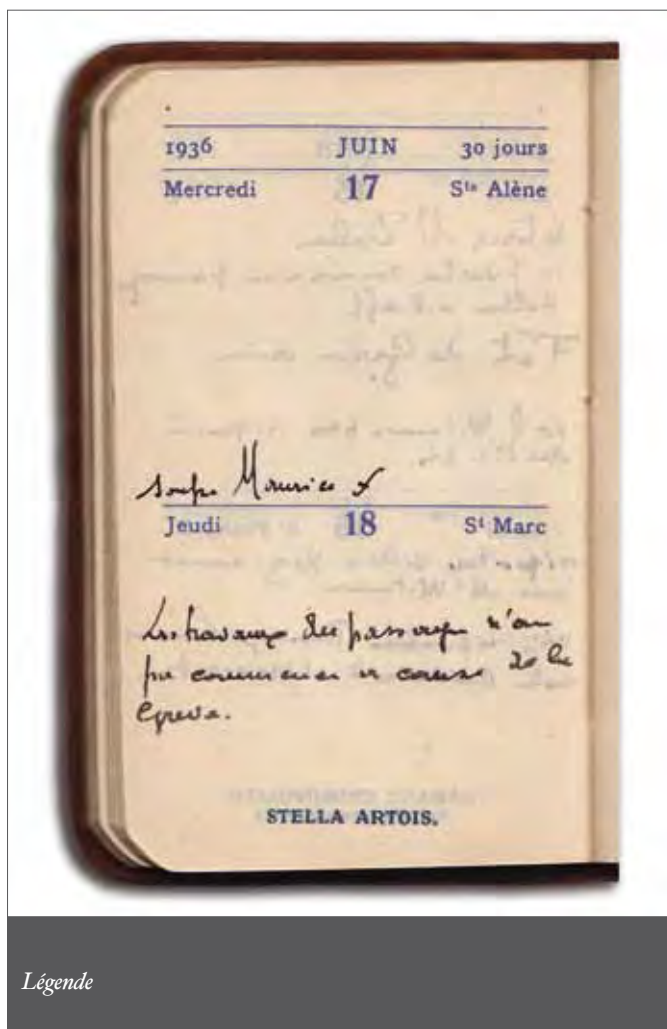 1936 JUIN 30 jours
Mercredi 17 Ste Alène
soupe Maurice
Jeudi 18 St Marc
Les travaux du passage n'ont
pu commencer à cause de la
grève.
STELLA ARTOIS.
Légende